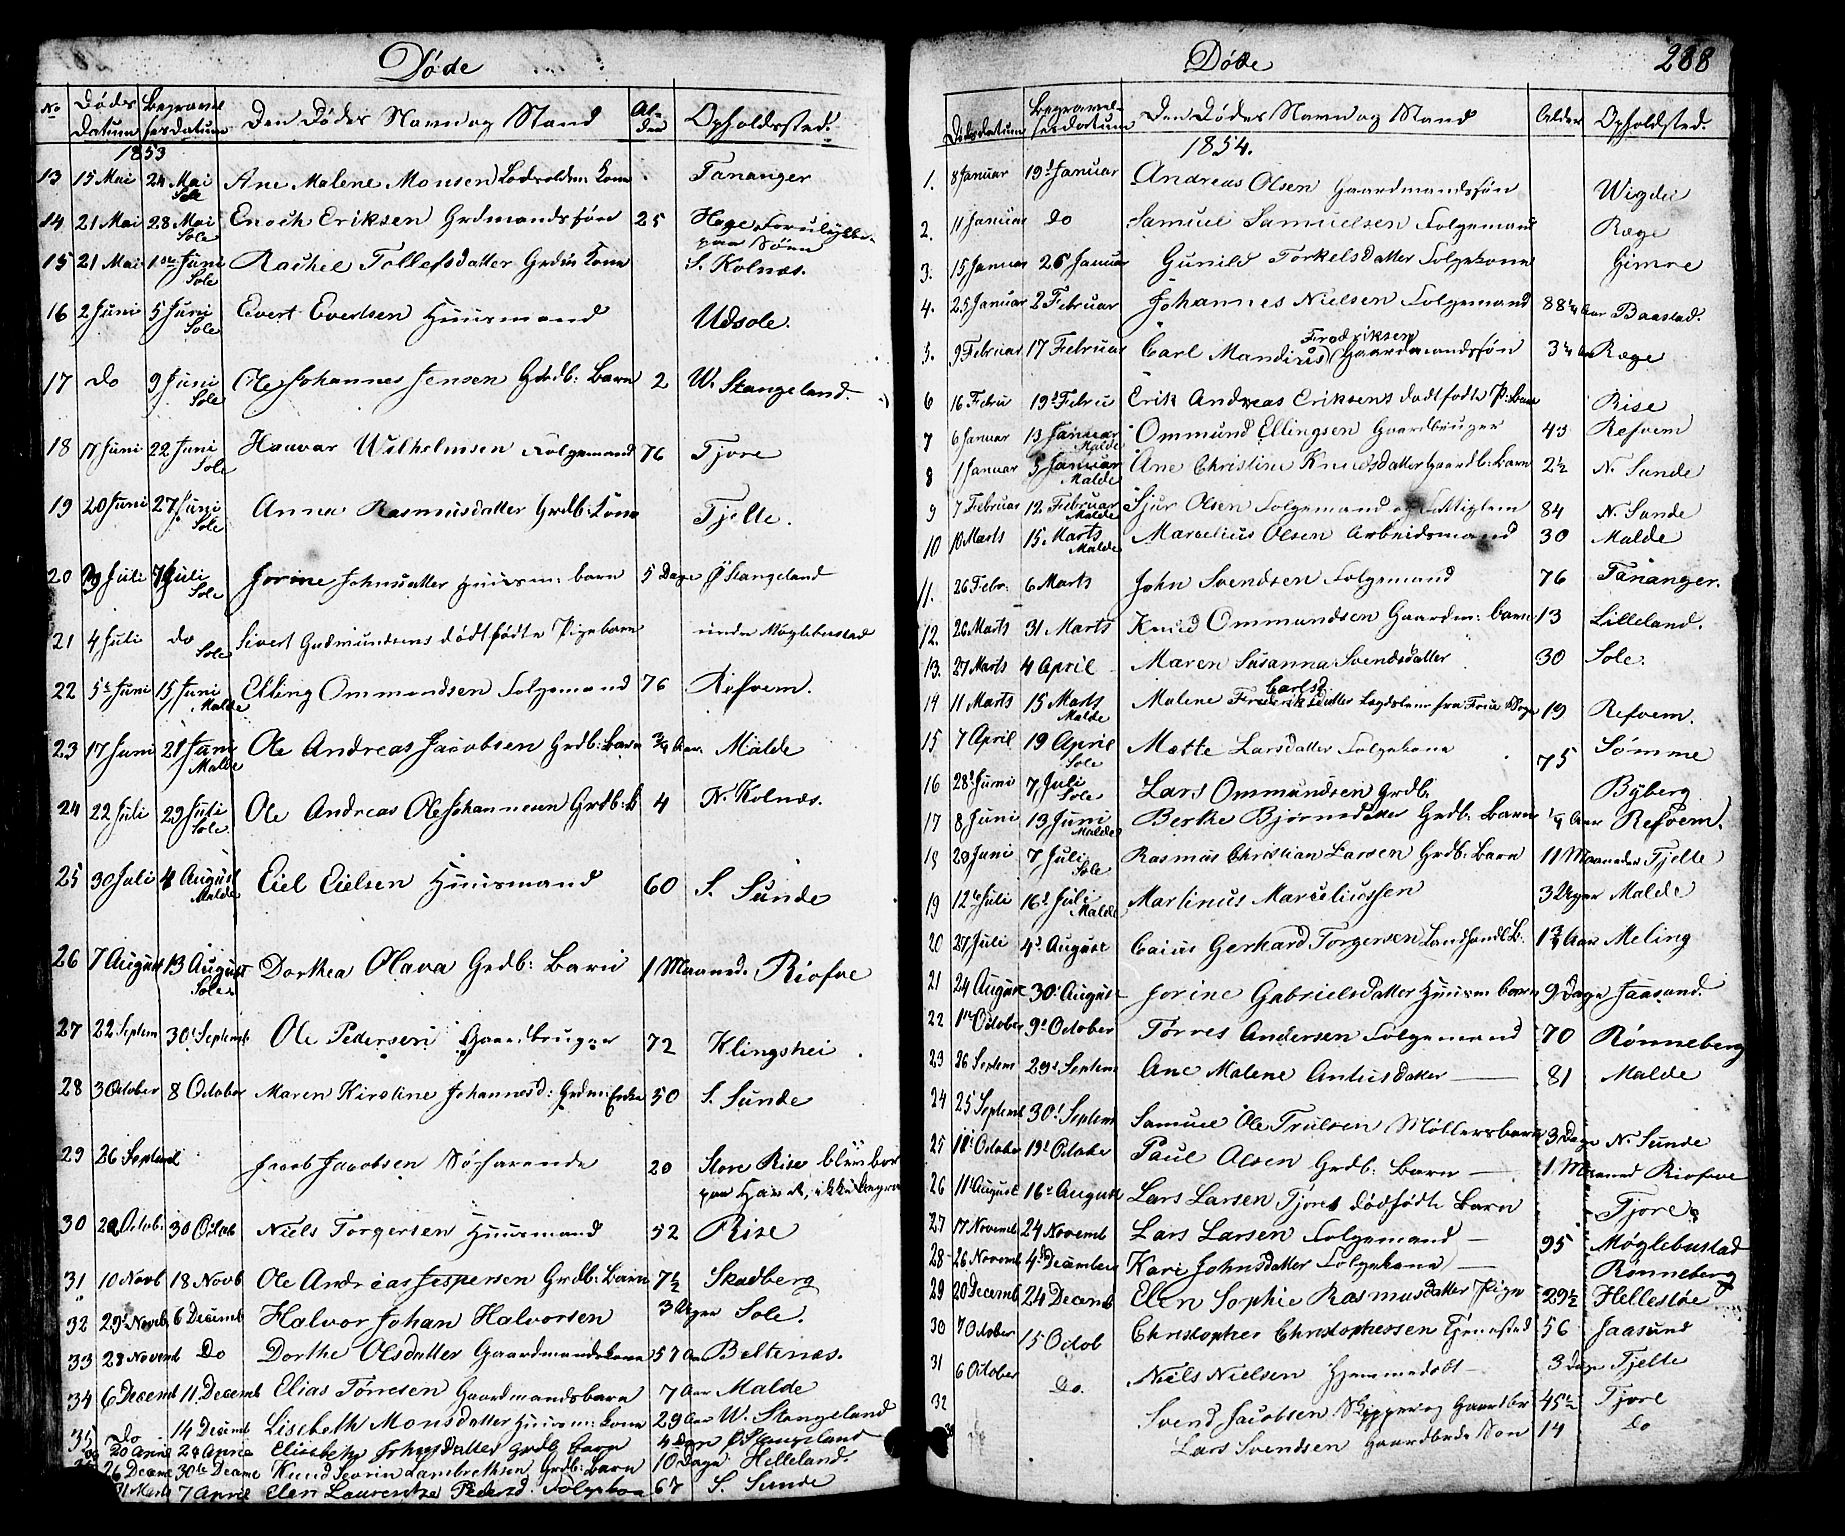 Døde
No Døds Datum Begravelsesdatum Den Dødes Navn og Stand Alder Opholdssted.
1853
13 15 Mai 24 Mai Sole Ane Malene Monsen Kone Tananger
14 21 Mai 28 Mai Sole Enoch Eriksen Grdmandssøn 25 Hage
15 21 Mai 1ste Juni Sole Rachel Tollefsdatter Kone S. Kolnæs.
16 2 Juni 5 Juni Sole Evert Evertsen Huusmand Udsole.
17 do 9 Juni Sole Ole Johannes Jensen Grdb: Barn 2 W. Stangeland.
18 17 Juni 22 Juni Sole Haavar Wilhelmsen Folgemand 76 Tjore
19 20 Juni 27 Juni Sole Anna Rasmusdatter Grdb: Kone Tjelte.
20 Juli Juli Sole Jorine Johnsdatter Huusm: barn 5 Dage Ø Stangeland
21 4 Juli do Sole Sivert Gudmundsens dødfødte Pigebarn under Møglebustad
22 5t Juni 15 Juni Malde Elling Ommundsen Folgemand 76 Refvem.
23 17 Juni 21 Juni Malde Ole Andreas Jacobsen Grdb: Barn 3/4 Aar Malde
24 22 Juli 29 Juli Sole Ole Andreas Ole Johannesen Grdb: B. 4 N. Kolnæs.
25 30 Juli 4 August Malde Eiel Eielsen Huusmand 60 S. Sunde
26 7 August 13 August Sole Dorthea Olava Grdb: Barn 1 Maaned. Riofve
27 22 Septem 30t Septemb Ole Pedersen Gaardbruger 72 Klingshei
28 3 October 8 October Maren Kirstine Johannesd: Grdm: Enke 50 S. Sunde
29 26 Septemb Jacob Jacobsen Søfarende 20 Store Rise bleven bort
paa Havet, ikke begra
30 22 Octob: 30 Octob Niels Torgersen Huusmand 52 Rise
31 10 Novb 18 Novb Ole Andreas Jespersen Grdb: Barn 7½ Skadberg
32 29t Novb 6 Decemb Halvor Johan Halvorsen 3 Uger Sole.
33 28 Novemb Do Dorthe Olsdatter Gaardmandskone 57 Aar Beltenæs.
34 6 Decemb 11 Decemb Elias Tørresen Gaardmandsbarn 7 Aar Malde
35 Do 14 Decemb Lisebeth Monsdatter Huusm: Kone 29 Aar W. Stangeland
20 April 24 April Elisebeth Johnsdatter Grdb Barn 4 Ø Stangeland
26 Decme 30te Decme Knud Severin Lambrethsen Grdb: Barn 10 Dage Helleland.
31 Marts 7 April Elen Laurentze Pedersd. Folgekone 67 S. Sunde
Døde 288
Dødsdatum Begravelsesdatum Den Dødes Navn og Stand Alder Opholdssted.
1854.
1. 8 Januar 19d Januar Andreas Olsen Gaardmandssøn Wigdel
2. 11 Januar do Samuel Samuelsen Folgemand Ræge
3. 15 Januar 26 Januar Gunild Torkelsdatter Folgekone Gimre
4. 25 Januar 2 Februar Johannes Nielsen Folgemand 88¼ Aar Baastad.
5. 9 Februar 17 Februar Carl Mandius Fredriksen Gaardmandssøn 3¼ Aar Ræge
6 16 Febru 19d Febru Erik Andreas Eriksens dødfødte P: Barn Rise
7 6 Januar 13 Januar Malde Ommund Ellingsen Gaardbruger 43 Refvem
8 1 Januar 5 Januar Malde Ane Christine Knudsdatter Gaardb: Barn 2½ N. Sunde
9 7 Februar 12 Februar Malde Sjur Olsen Folgemand og Fattiglem 84 N. Sunde
10 10 Marts 15 Marts Malde Marselius Olsen Arbeidsmand 30 Malde
11. 26 Febr. 6 Marts John Svendsen Folgemand 76 Tananger.
12. 26 Marts 31 Marts Knud Ommundsen Gaardm: barn 13 Lilleland.
13. 27 Marts 4 April Maren Susanna Svendsdatter 30 Sole.
14 11 Marts 15 Marts Malde Malene Fredriksdatter Carlsd. Lægdslem fra 19 Refvem.
15 7 April 19 April Sole Mætte Larsdatter Folgekone 75 Sømme
16 28d Juni 7 Juli Sole Lars Ommundsen Grdb: Byberg
17 8 Juni 13 Juni Malde Berthe Bjørnsdatter Grdb: Barn ¼ Aar Refvem.
18 20 Juni 7 Juli Sole Rasmus Christian Larsen Grdb: Barn 11 Maaneder Tjelte
19 12te Juli 16d Juli Malde Martinus Marseliussen 3 Uger Malde
20 27 Juli 4d August Caius Gerhard Torgersen Landhandl: B. 1¾ Aar Meling
21 24 August 30 August Jorine Gabrielsdatter Huusm barn 9 Dage Jaasund.
22 1ste October 9d October Tørres Andersen Folgemand 70 Rønneberg
23 26 Septem 29d Septem Ane Malene Antusdatter — 81 Malde
24 25 Septemb 30d Septem Samuel Ole Trulsen Møllersbarn 3 Dage N. Sunde
25 10d October 19d October Paul Olsen Grdb: Barn — 1 Maaned Riofve
26 11t August 16d August Lars Larsen Tjores dødfødte Barn Tjore
27 17 Novemb 24 Novemb Lars Larsen Folgemand — 95 Møglebustad
28 26 Novemb 4de Decembr Kari Johnsdatter Folgekone — Rønneberg
29 20 Decemb 24 Decemb Elen Sophie Rasmusdatter Pige 29½ Hellestøe
30 7 October 15 Octob Christopher Christophersen 56 Jaasund
31 6 October Do. Niels Nielsen Hjemmedøbt — 3 Dage Tjelte
32 Svend Jacobsen Skipper og Gaardbr 45½ Tjore
Lars Svendsen Gaardbrds Søn 14 Do